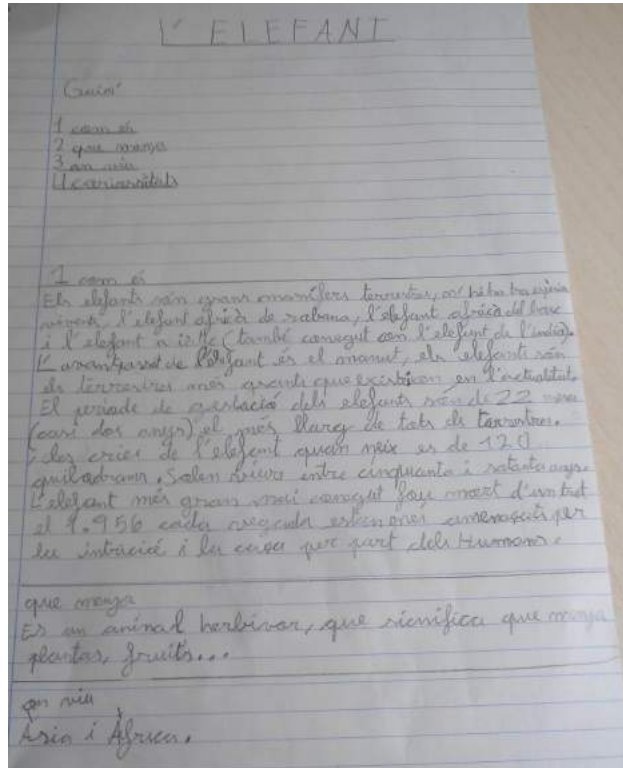 L'ELEFANT
Guió:
1 com és
2 que menja
3 on viu
4 curiositats
1 com és
Els elefants són grans mamífers terrestres, hi ha tres
vivents, l'elefant africà de sabana, l'elefant africà del bosc
i l'elefant a (també conegut com l'elefant de l'india).
L'avantpassat de l'elefant és el mamut, els elefants són
els terrestres més grants que en l'actualitat.
El periode de gestació dels elefants són de 22 mesos
(casi dos anys) el més llarg de tots els terrestres.
les cries de l'elefant quan neix es de 120
quilograms. Solen viure entre cinquanta i setanta anys.
L'elefant més gran mai conegut fou mort d'un tret
el 1.956 cada vegada estan més amenaçats per
la i la caça per part dels Humans.
que menja
Es un animal herbivor, que significa que menja
plantas, fruits...
on viu
Àsia i Àfrica.